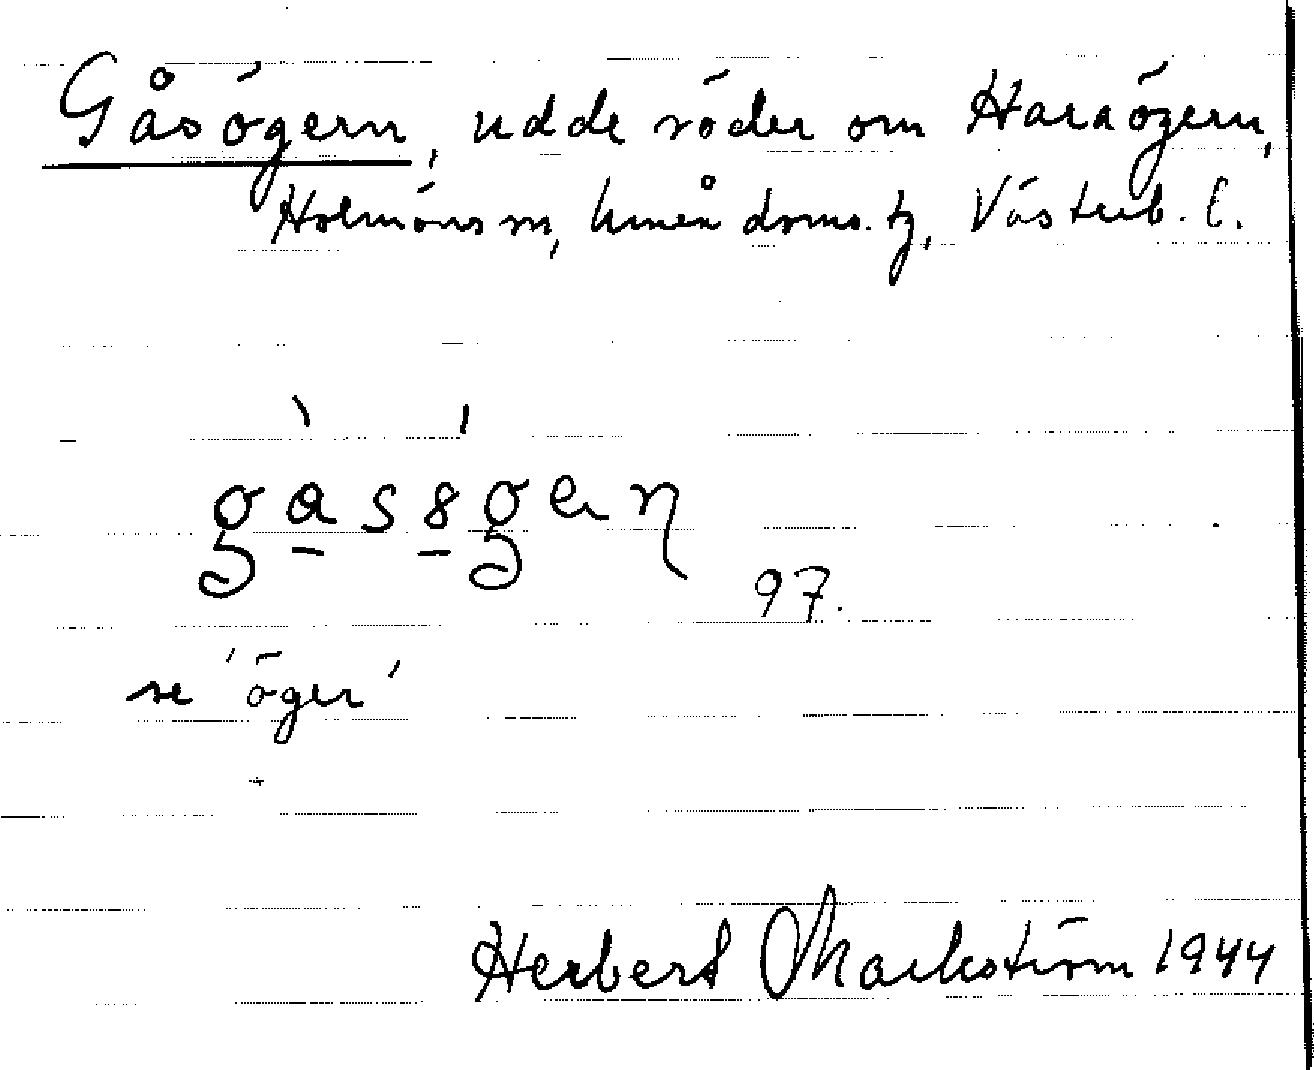 Gåsögern, udde söder om Haraögern,
Holmöns sn, Umeå doms. tg, Västerb. l.
gasögeɹn 97.
se 'öger'
Herbert Markström 1944